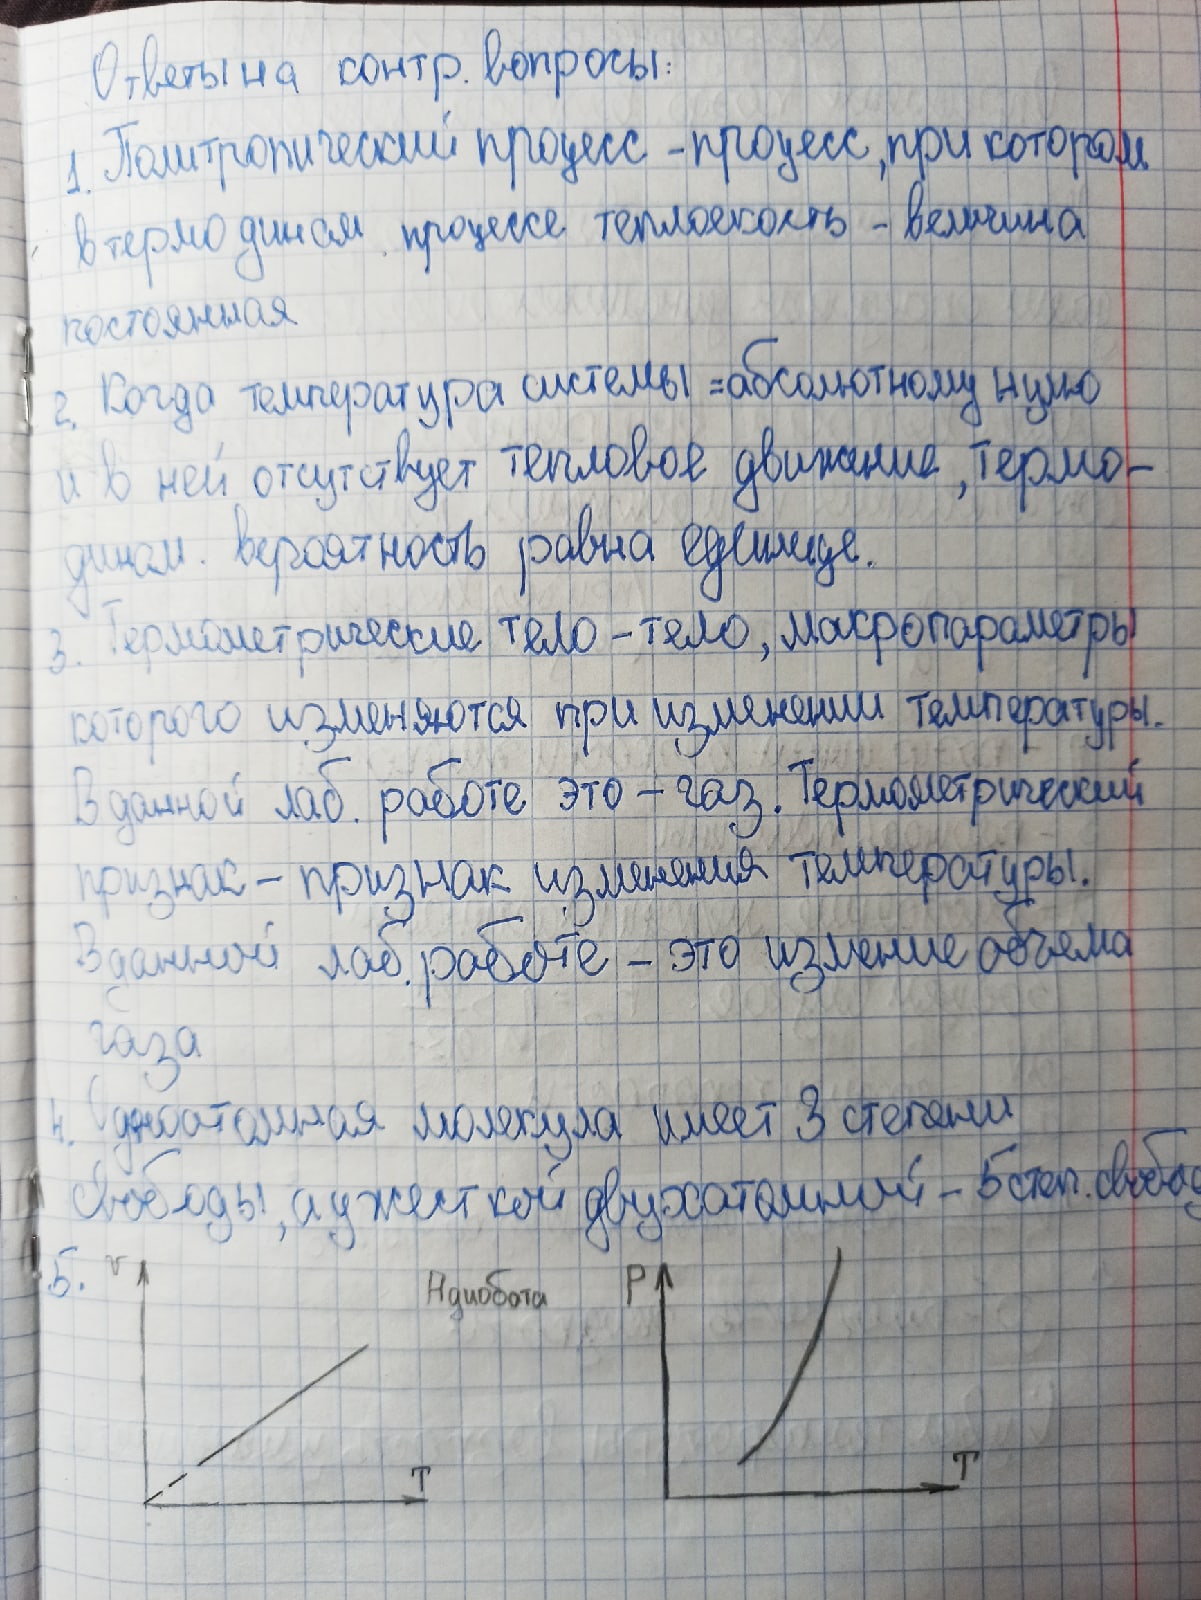 Ответы на контр. вопросы:
1. Политропический процесс - процесс, при котором
в термодинам. процессе теплоекость - величина
постоянная
2. Когда температура системы = абсолютному нулю
и в ней отсутствует тепловое движение, термо-
динам. вероятность равна единице.
3. Термометрические тело - тело, макропараметры
которого изменяются при изменении температуры.
В данной лаб. работе это - газ. Термометрический
признак - признак изменения температуры.
В данной лаб. работе - это измение объема
газа
4. Одноатомная молекула имеет 3 степени
свободы, а у жесткой двухатомной - 5 степ. свобод
5. V Адиобота P
T T